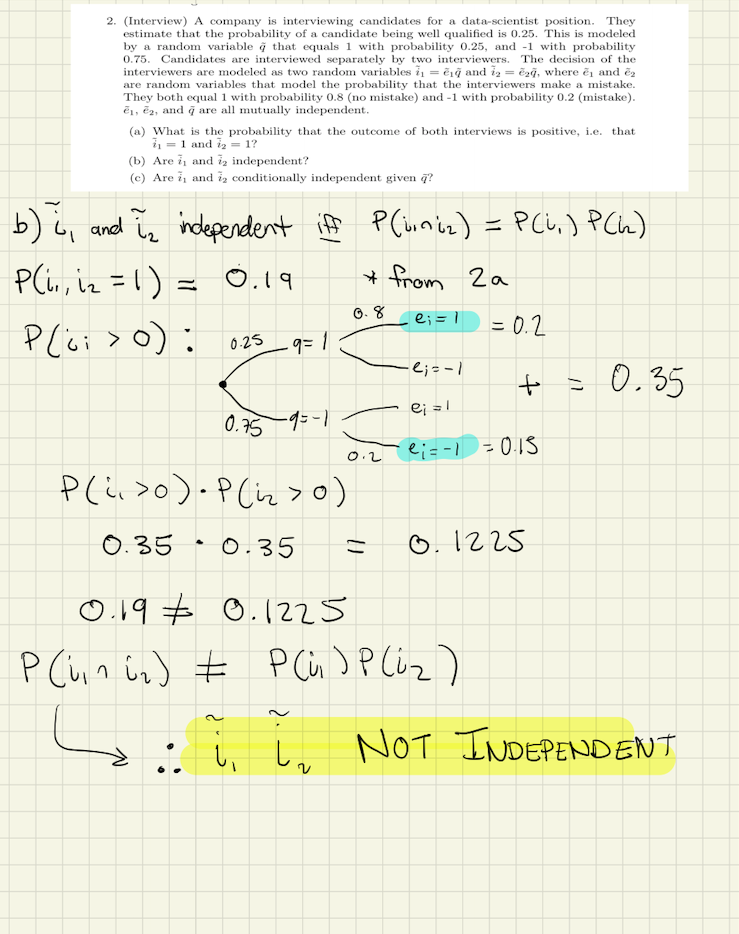 2. (Interview) A company is interviewing candidates for a data-scientist position. They
estimate that the probability of a candidate being well qualified is 0.25. This is modeled
by a random variable q̃ that equals 1 with probability 0.25, and -1 with probability
0.75. Candidates are interviewed separately by two interviewers. The decision of the
interviewers are modeled as two random variables ĩ₁ = ẽ₁q̃ and ĩ₂ = ẽ₂q̃, where ẽ₁ and ẽ₂
are random variables that model the probability that the interviewers make a mistake.
They both equal 1 with probability 0.8 (no mistake) and -1 with probability 0.2 (mistake).
ẽ₁, ẽ₂, and q̃ are all mutually independent.
(a) What is the probability that the outcome of both interviews is positive, i.e. that
ĩ₁ = 1 and ĩ₂ = 1?
(b) Are ĩ₁ and ĩ₂ independent?
(c) Are ĩ₁ and ĩ₂ conditionally independent given q̃?
b) ĩ₁ and ĩ₂ independent iff P(i₁∩i₂) = P(i₁) P(i₂)
P(i₁, i₂ = 1) = 0.19 * from 2a
P(iᵢ > 0) :
0.25 q = 1 0.8 eᵢ = 1 = 0.2
eᵢ = -1
+ = 0.35
0.75 q = -1 eᵢ = 1
0.2 eᵢ = -1 = 0.15
P(i₁ > 0) · P(i₂ > 0)
0.35 · 0.35 = 0.1225
0.19 ≠ 0.1225
P(i₁ ∩ i₂) ≠ P(i₁) P(i₂)
∴ ĩ₁ ĩ₂ NOT INDEPENDENT